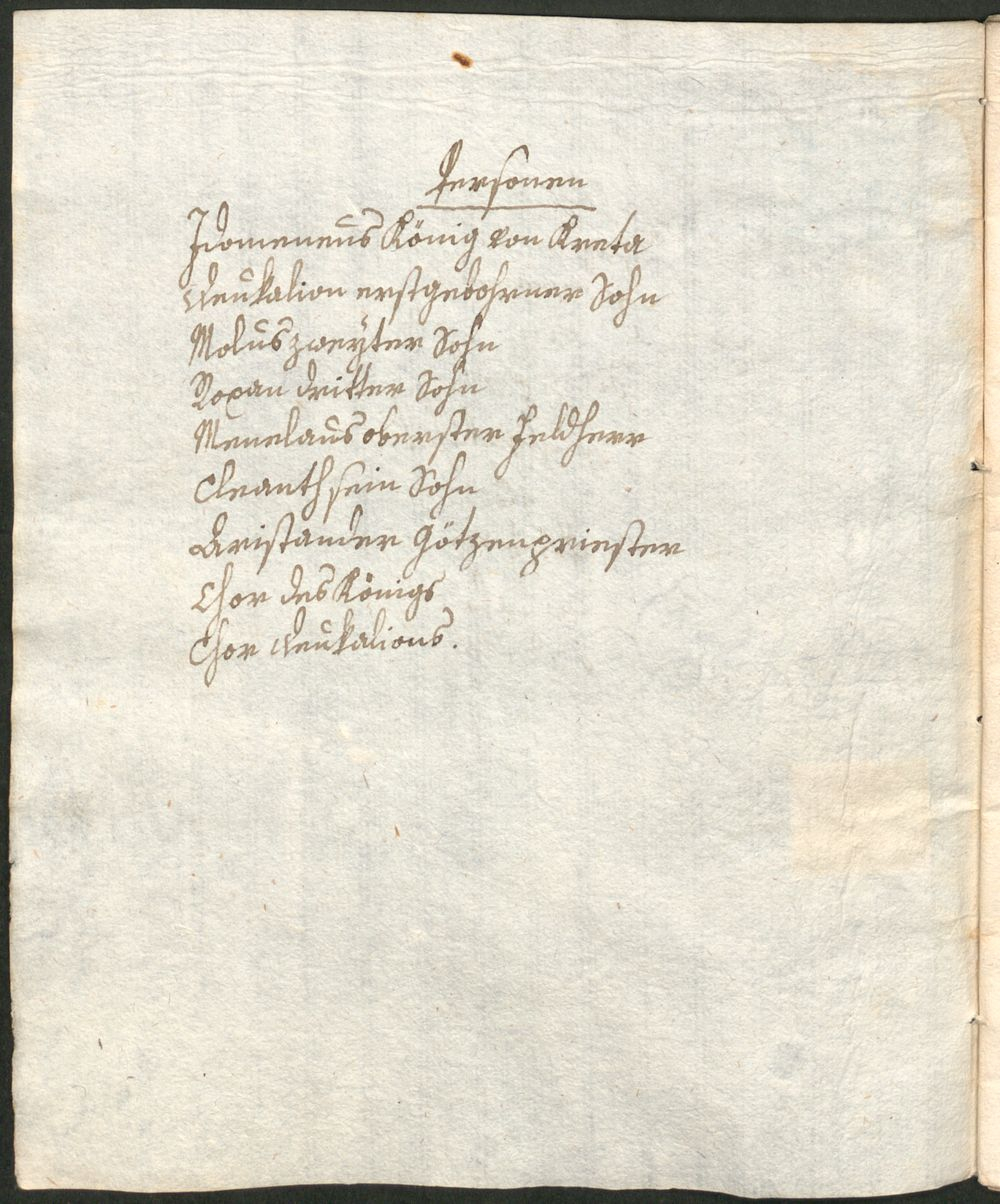 Personen
Idomeneus König von Kreta
Deukalion erstgebohrner Sohn
Molus zweÿter Sohn
Roxan dritter Sohn
Menelaus oberster Feldherr
Cleanth sein Sohn
Aristander Götzenpriester
Chor des Königs
Chor Deukalions.